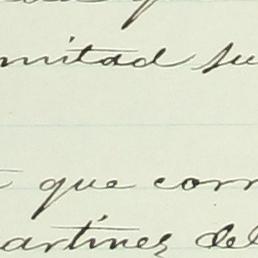 mitad su
que corr
artinez del